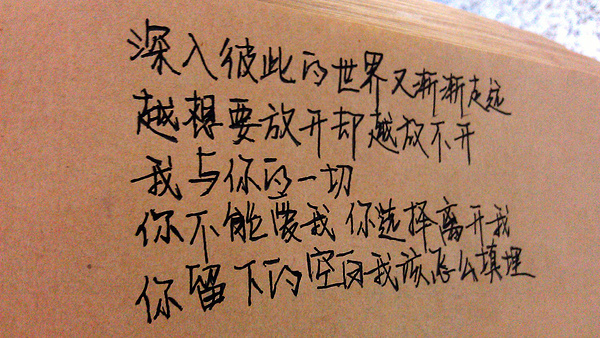 深入彼此的世界又渐渐走远
越想要放开却越放不开
我与你的一切
你不能爱我 你选择离开我
你留下的空白我该怎么填埋